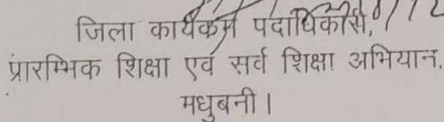 जिला कार्यक्रम पदाधिकारी,
प्रारम्भिक शिक्षा एवं सर्व शिक्षा अभियान,
मधुबनी।